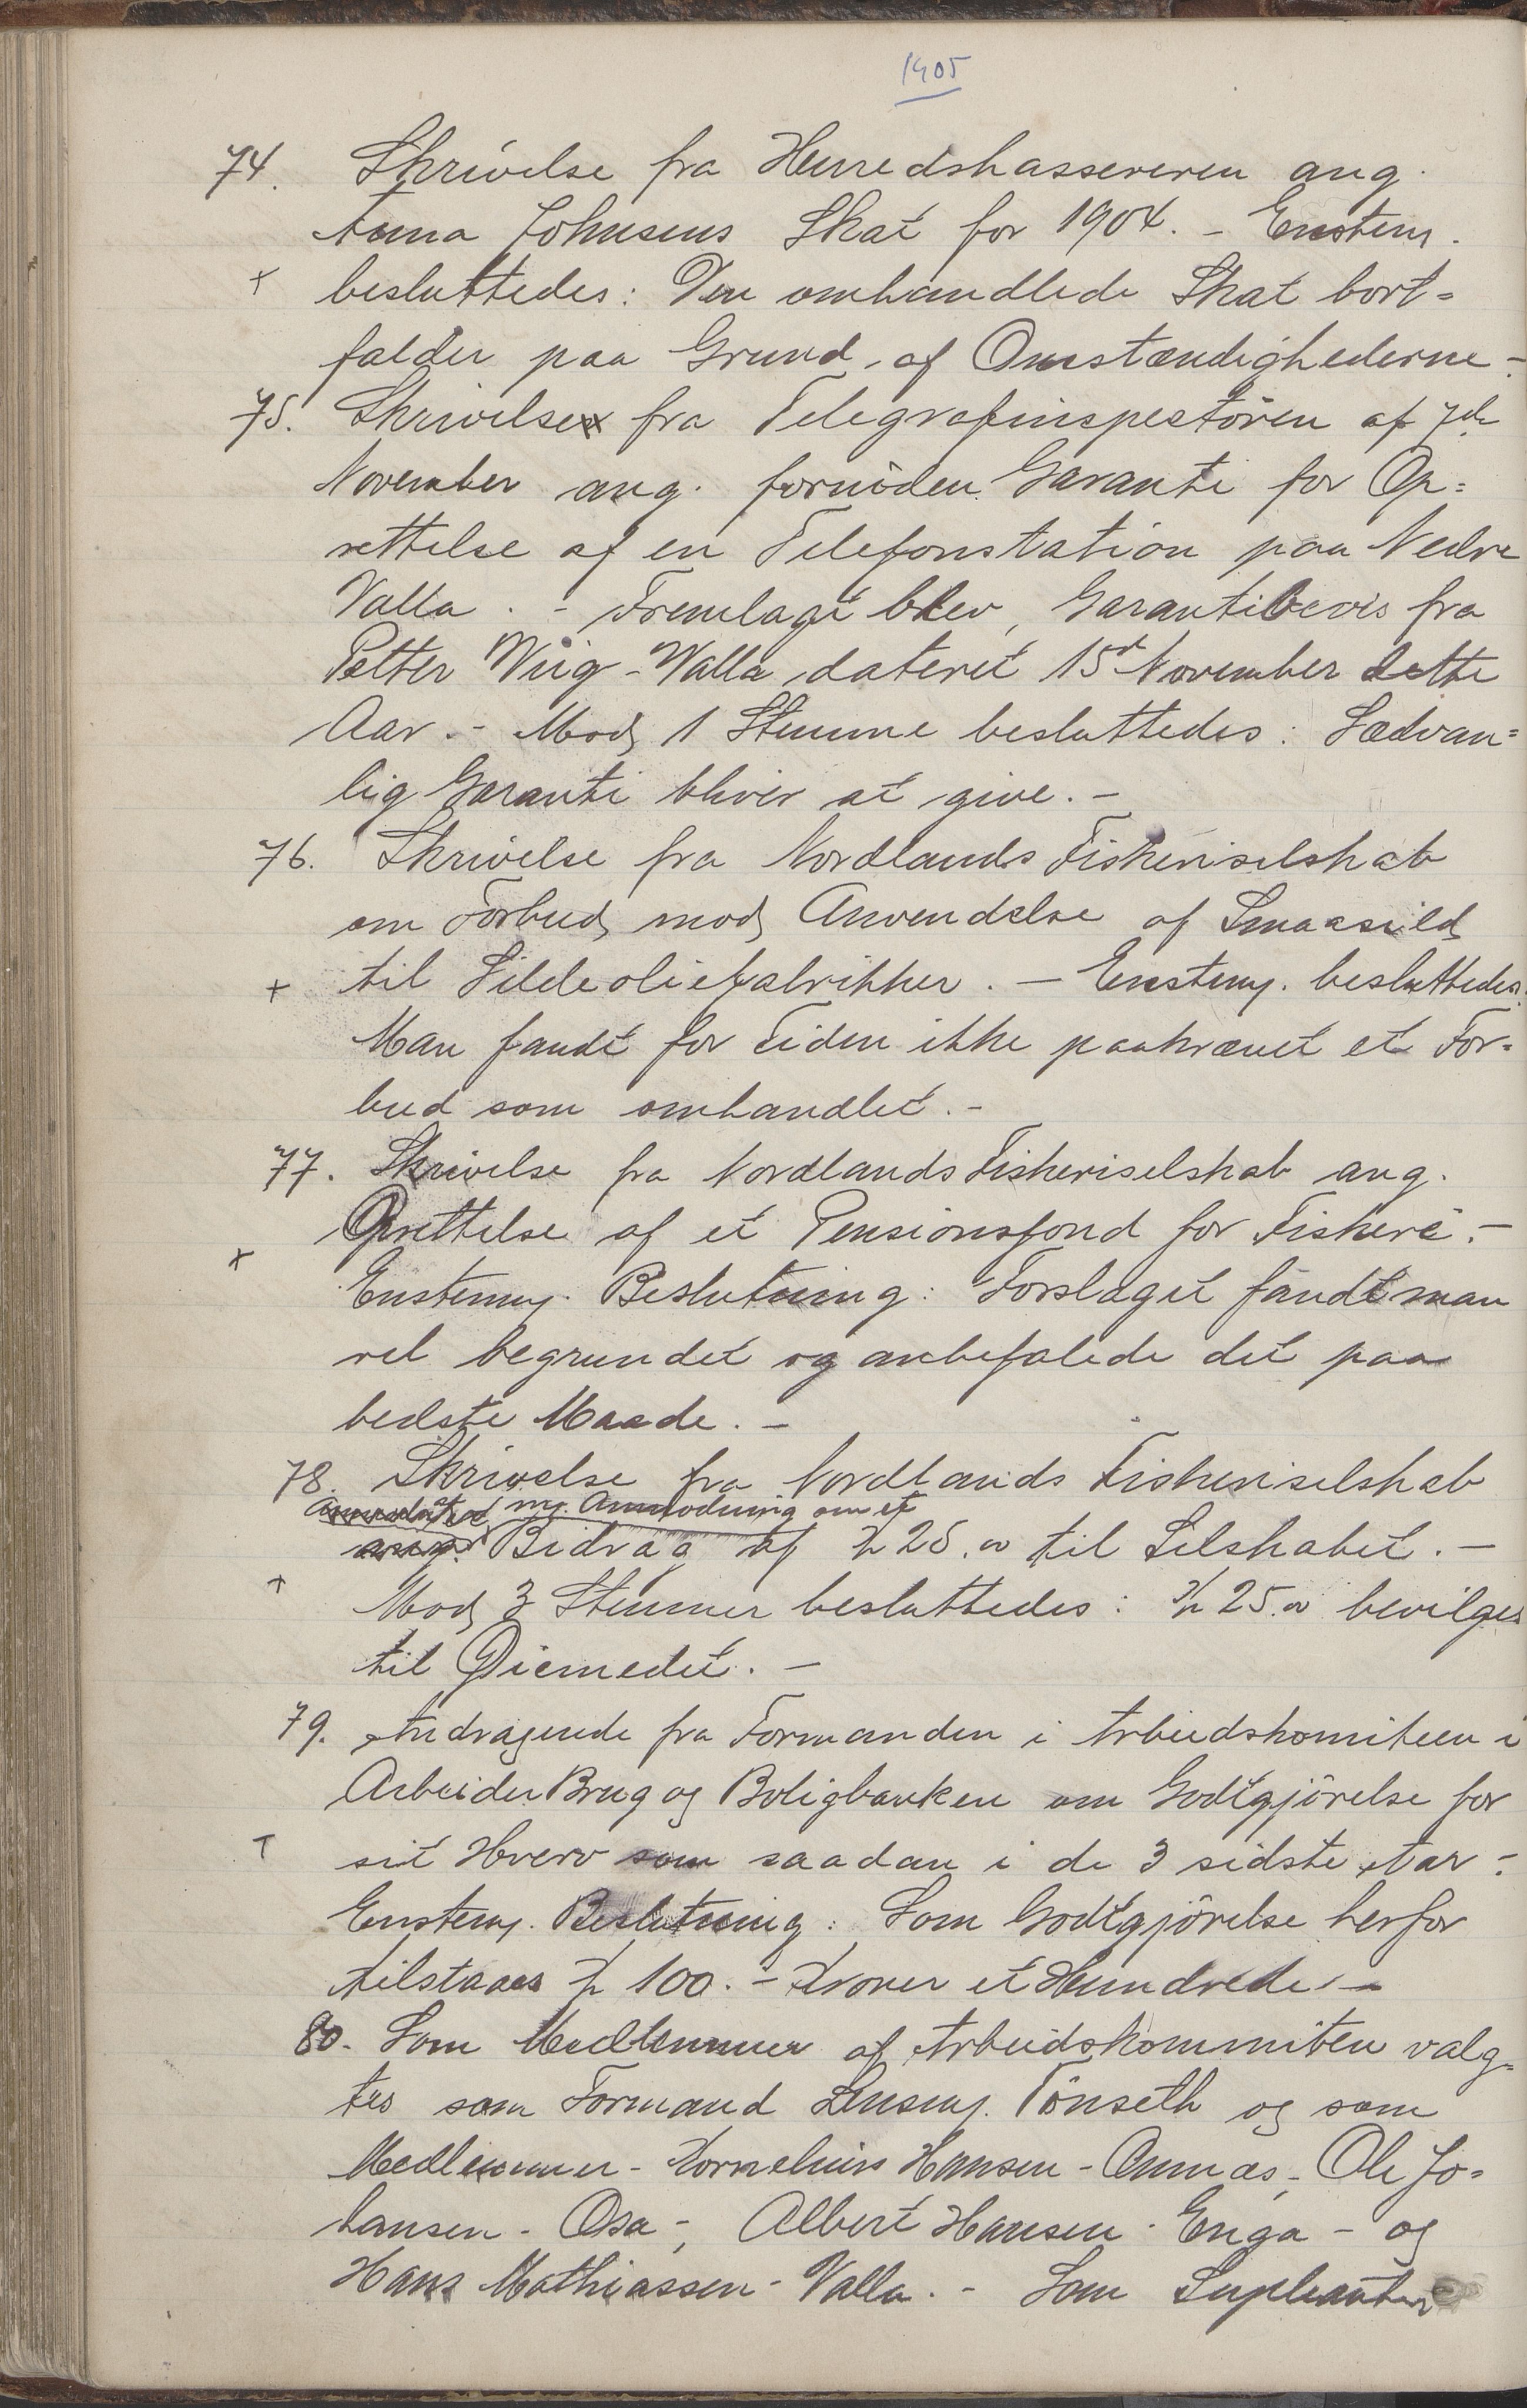 1905
74. Skrivelse fra Herredskassereren ang.
Anna Johnsens Skat for 1904. - Enstem.
+ besluttedes: Den omhandlede Skat bort=
falder paa Grund af Omstændighederne -
75. Skrivelse fra Telegrafinspektören af 7de
November ang. fornöden Garanti for Op=
rettelse af en Telefonstation paa Nedre
Valla. - Fremlagt blev Garantibevis fra
Petter Wiig - Valla dateret 15de November dette
Aar. - Mod 1 Stemme besluttedes: Sædvan=
lig Garanti bliver at give. -
76. Skrivelse fra Nordlands Fiskeriselskab
om Forbud mod Anvendelse af Smaasild
+ til Sildeoliefabrikker. - Enstemg. besluttedes:
Man fandt for Tiden ikke paakrævet et For=
bud som omhandlet. -
77. Skrivelse fra Nordlands Fiskeriselskab ang.
Oprettelse af et Pensionsfond for Fiskere. -
+
Enstemg. Beslutning: Forslaget fandt man
vel begrundet og anbefalede det paa
bedste Maade. -
78. Skrivelse fra Nordlands Fiskeriselskab
m. Anmodning om et
ang. Bidrag af Kr 25.00 til Selskabet. -
+
Mod 3 Stemmer besluttedes: Kr 25.00 bevilges
til Öiemedet. -
79. Andragende fra Formanden i Arbeidskomiteen i
Arbeider Brug og Boligbanken om Godtgjörelse for
+ sit Hverv som saadan i de 3 sidste Aar: -
Enstemg. Beslutning: Som Godtgjörelse herfor
tilstaaes Kr 100. - Kroner et Hundrede. -
80. Som Medlemmer af Arbeidskommiten valg=
tes som Formand Lensmg. Tönseth og som
Medlemmer - Kornelius Hansen - Ommas, Ole Jo=
hansen - Osa -, Albert Hansen - Enga - og
Hans Mathiassen - Valla. - Som Supleanter